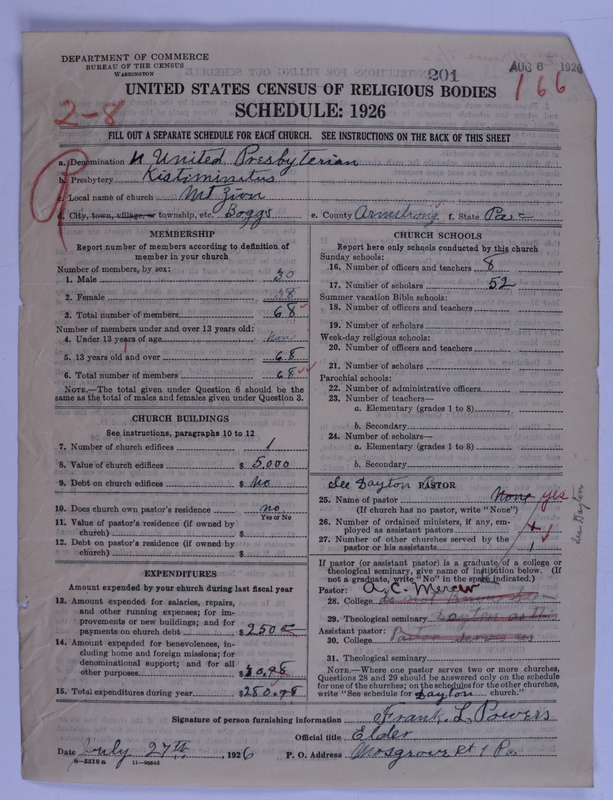 DEPARTMENT OF COMMERCE
BUREAU OF THE CENSUS
WASHINGTON
201
AUG 6 1926
166
UNITED STATES CENSUS OF RELIGIOUS BODIES
SCHEDULE: 1926
2-8
FILL OUT A SEPARATE SCHEDULE FOR EACH CHURCH. SEE INSTRUCTIONS ON THE BACK OF THIS SHEET
a. Denomination United Presbyterian
b. Presbytery Kiskiminitus
c. Local name of church Mt Zion
d. City, town, village, or township, etc. Boggs e. County Armstrong f. State Pa
MEMBERSHIP
Report number of members according to definition of
member in your church
Number of members, by sex:
1. Male 30
2. Female 38
3. Total number of members 68
Number of members under and over 13 years old:
4. Under 13 years of age None
5. 13 years old and over 68
6. Total number of members 68
NOTE.—The total given under Question 6 should be the
same as the total of males and females given under Question 3.
CHURCH BUILDINGS
See instructions, paragraphs 10 to 12
7. Number of church edifices 1
8. Value of church edifices $ 5,000
9. Debt on church edifices $ No
10. Does church own pastor's residence no
Yes or No
11. Value of pastor's residence (if owned by
church) $
12. Debt on pastor's residence (if owned by
church) $
EXPENDITURES
Amount expended by your church during last fiscal year
13. Amount expended for salaries, repairs,
and other running expenses; for im-
provements or new buildings; and for
payments on church debt $ 250
14. Amount expended for benevolences, in-
cluding home and foreign missions; for
denominational support; and for all
other purposes $ 30.98
15. Total expenditures during year $ 280.98
CHURCH SCHOOLS
Report here only schools conducted by this church
Sunday schools:
16. Number of officers and teachers 8
17. Number of scholars 52
Summer vacation Bible schools:
18. Number of officers and teachers
19. Number of scholars
Week-day religious schools:
20. Number of officers and teachers
21. Number of scholars
Parochial schools:
22. Number of administrative officers
23. Number of teachers—
a. Elementary (grades 1 to 8)
b. Secondary
24. Number of scholars—
a. Elementary (grades 1 to 8)
b. Secondary
See Dayton PASTOR
25. Name of pastor None yes
(If church has no pastor, write "None")
26. Number of ordained ministers, if any, em-
ployed as assistant pastors
27. Number of other churches served by the
pastor or his assistants 1
See Dayton
If pastor (or assistant pastor) is a graduate of a college or
theological seminary, give name of institution below. (If
not a graduate, write "No" in the space indicated.)
Pastor: A. C. Mercer
28. College
29. Theological seminary
Assistant pastor:
30. College
31. Theological seminary
NOTE.—Where one pastor serves two or more churches,
Questions 28 and 29 should be answered only on the schedule
for one of the churches; on the schedules for the other churches,
write "See schedule for Dayton church."
Signature of person furnishing information Frank L Powers
Official title Elder
Date July 27th, 1926 P. O. Address Mosgrove Rt 1 Pa.
8-5518a 11-